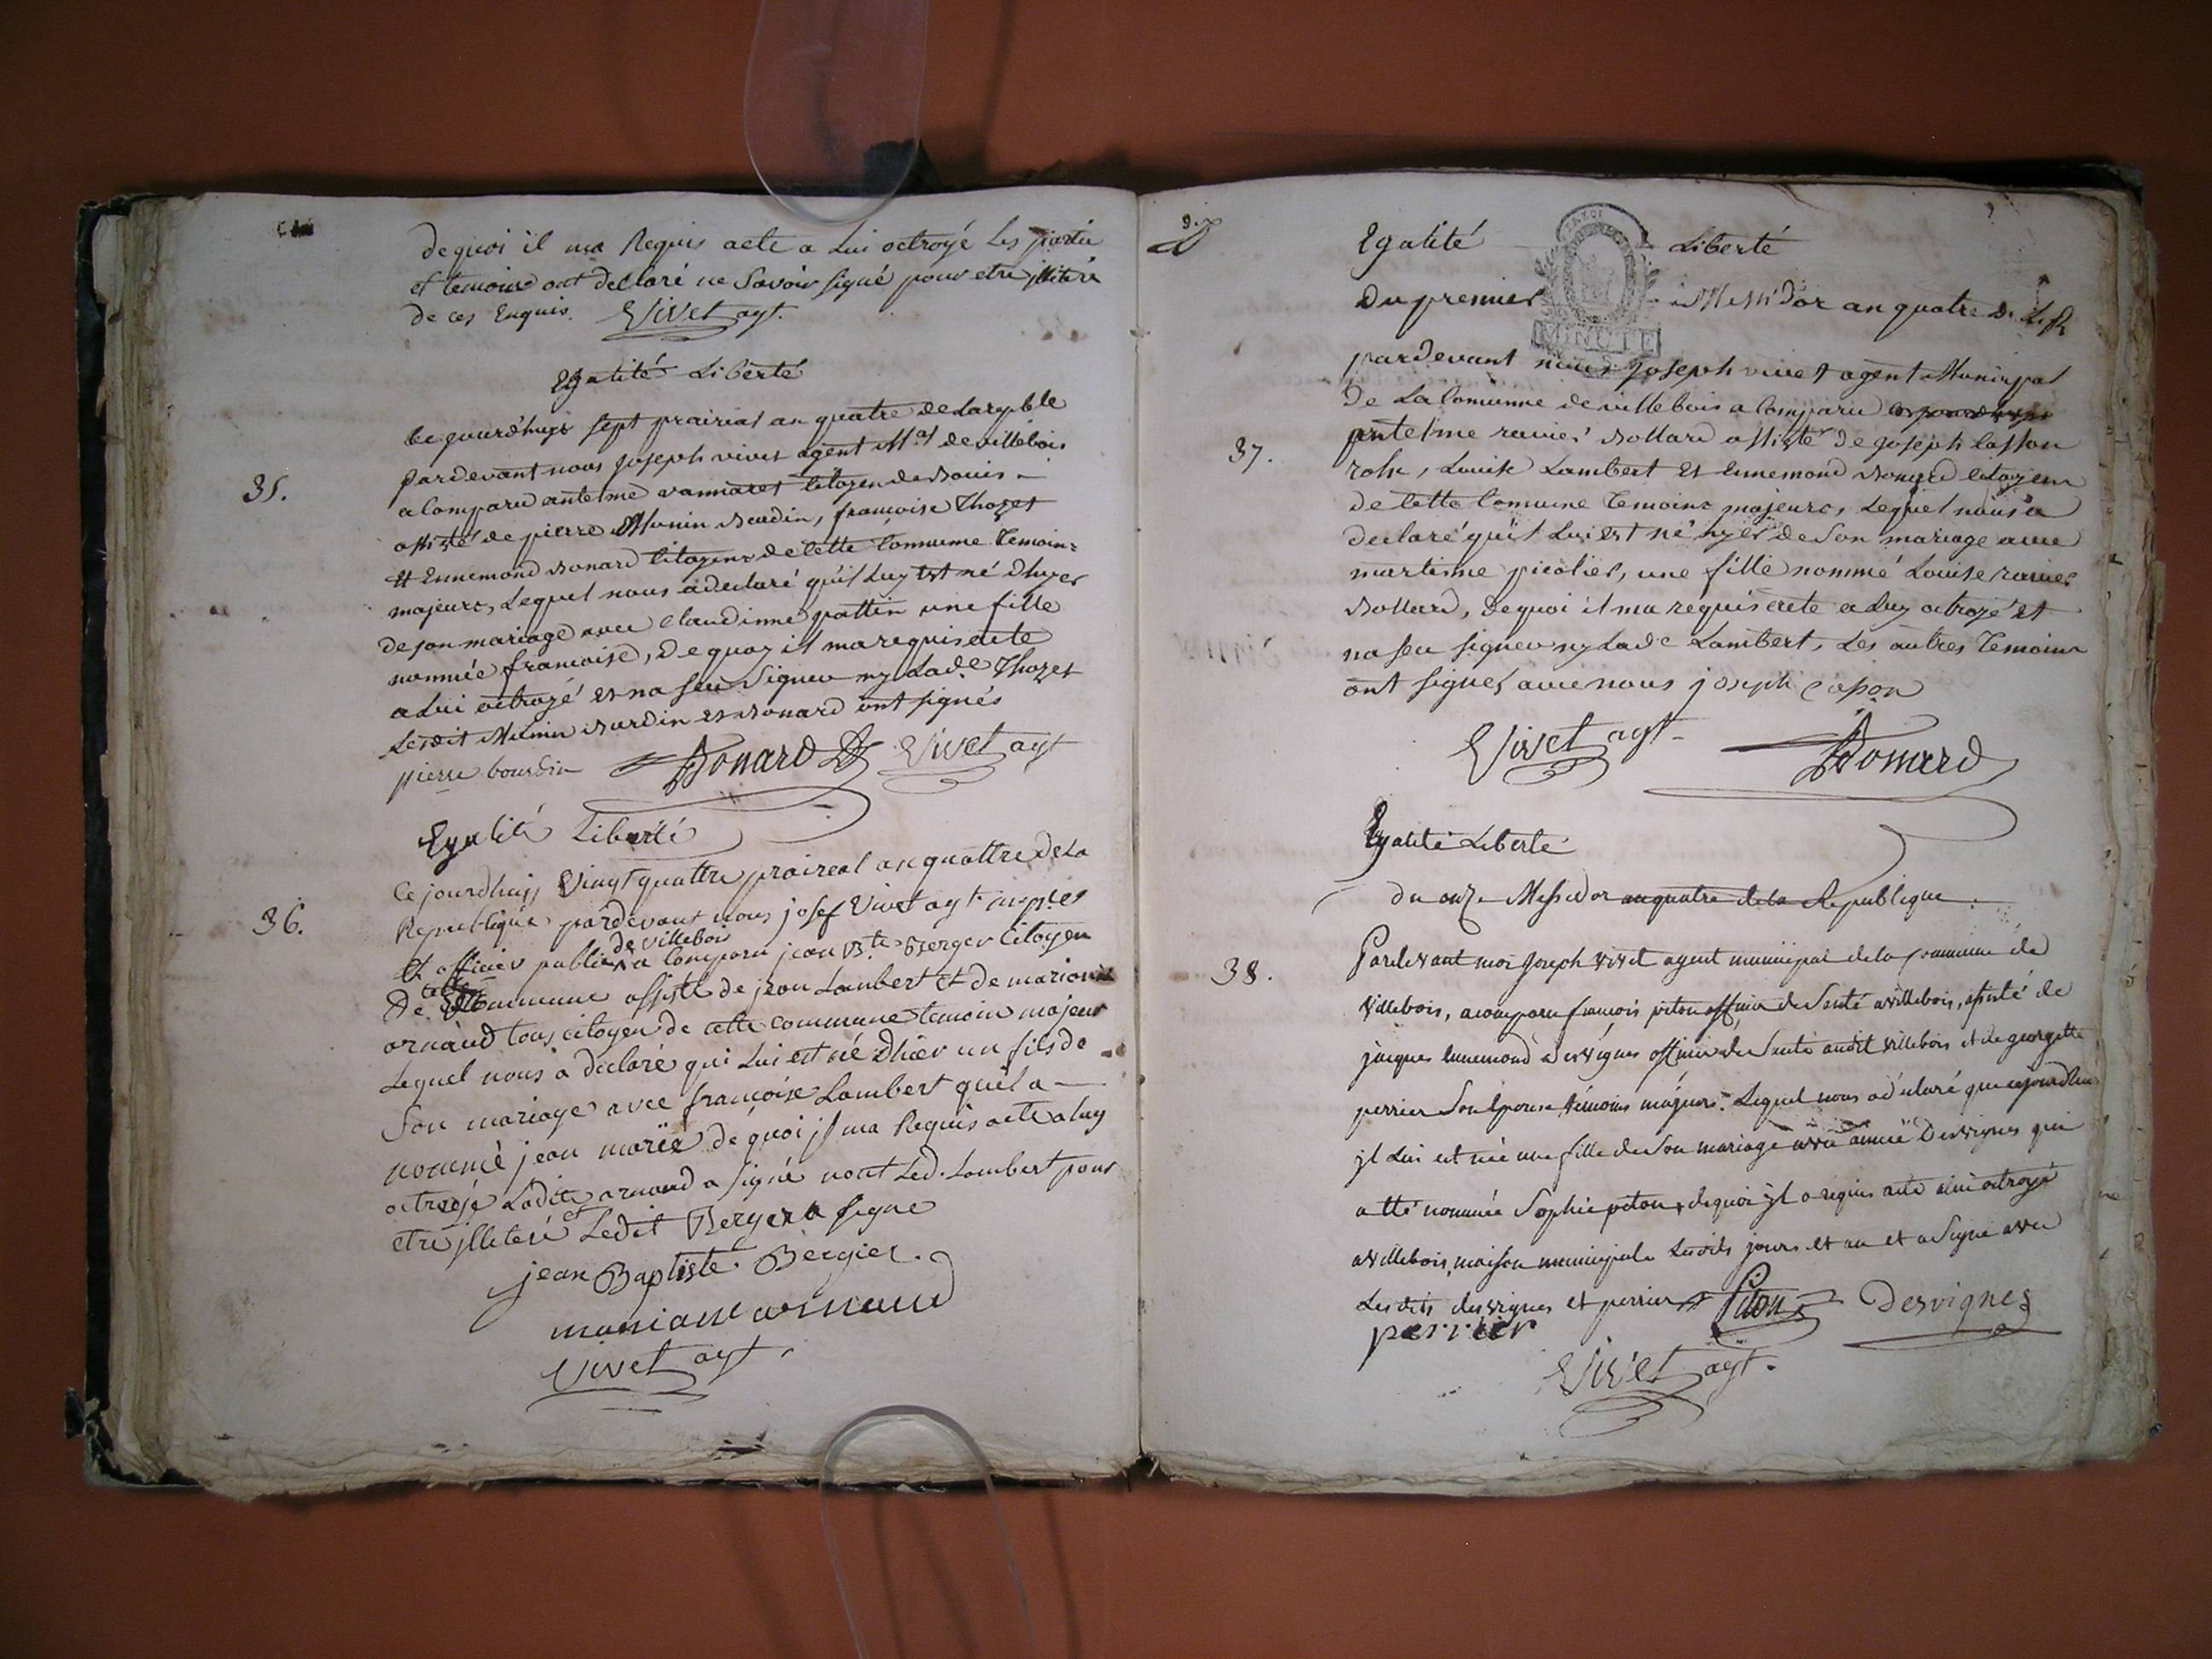 dequoi il ma Requis acte a Lui octroyé Les partie
et temoins ont declaré ne Savoir signé pour etre jlliteré
de ces Enquis. Vivet agt.
Egalité Liberté
35.
Ce jourd'huys sept prairial an quatre de La
pardevant nous joseph vivet agent Mal de villebois
a Comparu antelme vannaret Citoyen de
assisté de pierre Munin Bourdin, francoise Thozet
Et Ennemond Bonard Citoyens de Cette Commune Temoins
majeurs, Lequel nous a declaré qu'il Luy Est né d'hyer
de son mariage avec Claudinne pattin une fille
nommée francoise, De quoy il ma requis acte
a Lui octroyé et na seu Signer ny Lade Thozet
Lesdit Munin Bourdin et Bonard ont signés
pierre bourdin Bonard Vivet agt
Egalité Liberté
36.
Ce jourdhuy Vingt quattre praireal an quattre de La
Republique pardevant nous josef Vivet agt
et officier public de villebois a Comparu jean Bte Berger Citoyen
De cette Commune assisté de jean Lambert et de marianne
arnaud tous citoyen de cette commune temoin majeur
Lequel nous a declaré qui Lui est né dhier un fils de
Son mariage avec françoise Lambert quil a
nommé jean marie de quoi jl ma Requis acte a luy
octroyé Ladite arnaud a signé nont Led. Lambert pour
etre jlleteré et Ledit Berger a signe
jean Baptiste Bergier.
mariane arnaud
Vivet agt.
9.
Egalité Liberté
Du premier Messidor an quatre De La R
MINUTE
37.
pardevant nous joseph vivet agent Municipal
De La Commune de villebois a Comparu
antelme ravier Bollard assisté de joseph Casson
, Louise Lambert Et Ennemond Bonard Citoyens
de Cette Commune Temoins majeurs, Lequel nous a
declaré qu'il Lui est né hyer de Son mariage avec
martinne picolier, une fille nommé Louise ravier
Bollard, dequoi il ma requis acte a Luy octroyé et
na seu signer ny Lade Lambert, Les autres Temoins
ont signés avec nous joseph Cason
Vivet agt. Bonard
Egalité Liberté
du onze Messidor an quatre de la Republique.
38.
Pardevant moi Joseph Vivet agent municipal de la commune de
Villebois, a comparu françois piton officier de Santé a villebois, assisté de
jacques ennemond Desvignes officier de Santé audit villebois et de georgette
perrier Son Epouse, témoins majeurs. Lequel nous a déclaré que cejourdhui
jl Lui est née une fille de Son mariage avec aimée Desvignes qui
a été nommée Sophie piton, dequoi jl a requis acte a lui octroyé
a villebois, maison municipale Lesdits jours et an et a Signé avec
Lesdits desvignes et perrier Piton Desvignes
perrier
Vivet agt.